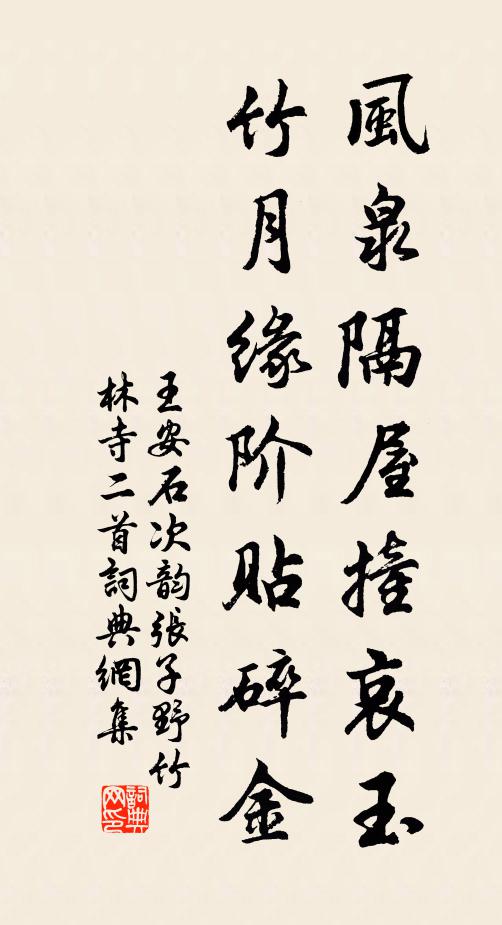 風泉隔屋撞哀玉
竹月缘阶貼碎金
王安石次韵張子野竹
林寺二首詞典網集
詞典
网印